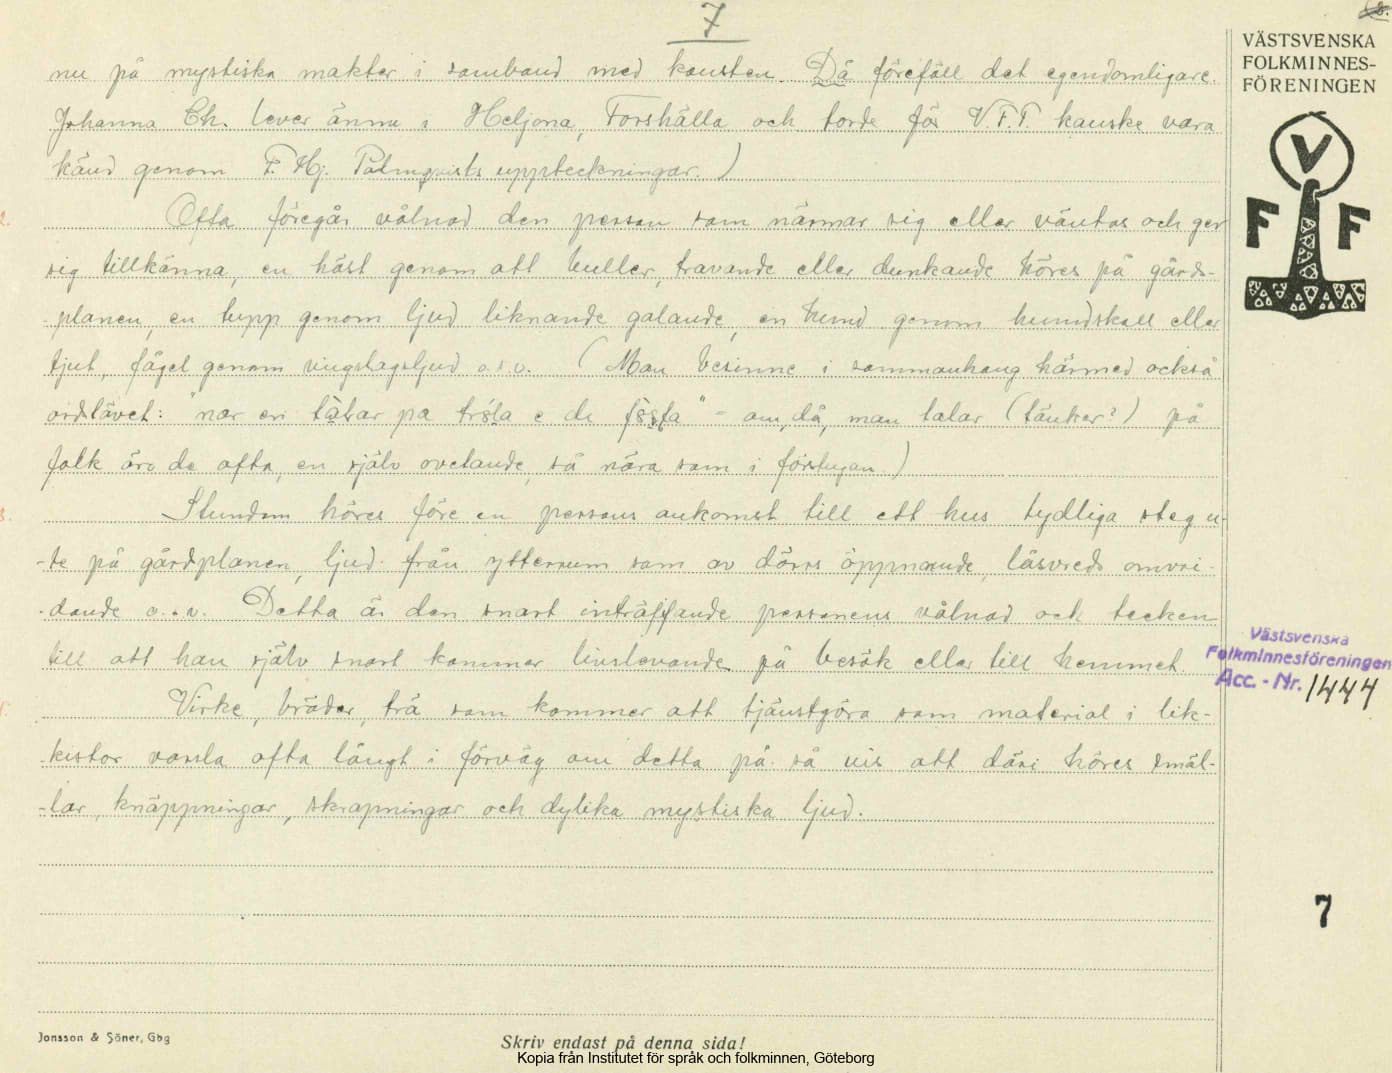 7
nu på mystiska makter i samband med konsten. Då föreföll det egendomligare.
Johanna Ch. lever ännu i Heljona, Forshälla och torde för V.F.F. kanske vara
känd genom F. Hj. Palmqvists uppteckningar.)
Ofta föregår vålnad den person som närmar sig eller väntas och ger
sig tillkänna, en häst genom att buller, travande eller dunkande höres på gårds-
planen, en tupp genom ljud liknande galande, en hund genom hundskall eller
tjut, fågel genom vingslagsljud o.s.v. (Man besinne i sammanhang härmed också
ordstävet: "nar en talar pa e de" - om, då, man talar (tänker?) på
folk äro de ofta, en själv ovetande, så nära som i förstugan.)
Stundom höres före en persons ankomst till ett hus tydliga steg u-
-te på gårdplanen, ljud från ytterrum som av dörrs öppnande, låsvreds omvri-
-dande o.s.v. Detta är den snart inträffande personens vålnad och tecken
till att han själv snart kommer livslevande på besök eller till hemmet.
Virke, bräder, trä som kommer att tjänstgöra som material i lik-
kistor varsla ofta långt i förväg om detta på så vis att däri höres smäl-
-lar, knäppningar, skrapningar och dylika mystiska ljud.
VÄSTSVENSKA
FOLKMINNES-
FÖRENINGEN
V
F F
Västsvenska
Folkminnesföreningen
Acc. - Nr. 1444
7
Jonsson & Söner, Gbg
Skriv endast på denna sida!
Kopia från Institutet för språk och folkminnen, Göteborg